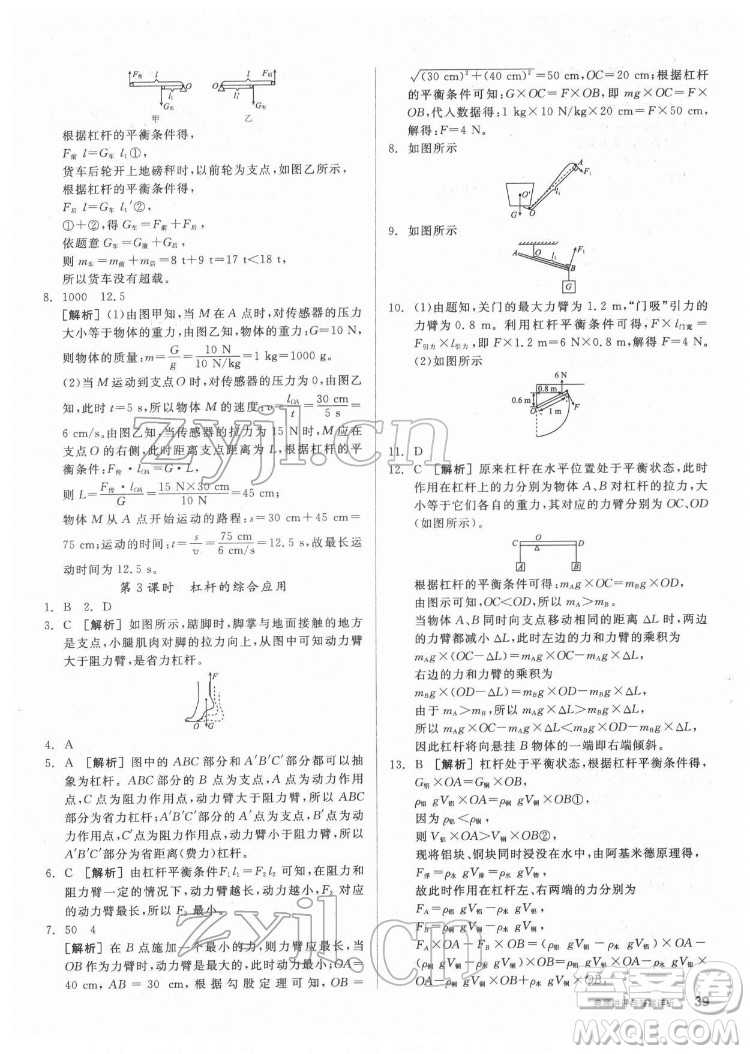 l
l
l₁
l₁′
O
O
F前
F后
G车
G车
甲 乙
根据杠杆的平衡条件得，
F前 l＝G车 l₁①，
货车后轮开上地磅秤时，以前轮为支点，如图乙所示，
根据杠杆的平衡条件得，
F后 l＝G车 l₁′②，
①＋②，得 G车＝F前＋F后，
依题意 G车＝G前＋G后，
则 m车＝m前＋m后＝8 t＋9 t＝17 t＜18 t，
所以货车没有超载。
8. 1000 12.5
［解析］(1)由图甲知，当 M 在 A 点时，对传感器的压力
大小等于物体的重力，由图乙知，物体的重力：G＝10 N，
则物体的质量：m＝G/g＝10 N/10 N/kg＝1 kg＝1000 g。
(2)当 M 运动到支点 O 时，对传感器的压力为 0，由图乙可
知，此时 t＝5 s，所以物体 M 的速度：v＝lOA/t＝30 cm/5 s＝
6 cm/s，由图知，当传感器的压力为 15 N 时，M 应在支点
O 的右侧，此时距离支点 O 为 L，如图所示，根据杠杆的平
衡条件，得：F传·lOA＝G·L，
则 L＝F传·lOA/G＝15 N×30 cm/10 N＝45 cm，
物体 M 从 A 点开始运动的路程：s＝30 cm＋45 cm＝
75 cm；运动的时间：t＝s/v＝75 cm/6 cm/s＝12.5 s，故物体 M
运动的时间为 12.5 s。
第 3 课时 杠杆的综合应用
1. B 2. D
3. C ［解析］如图所示，踮脚时，脚掌与地面接触的地方
是支点，小腿肌肉对脚的拉力向上，从图中可知动力臂
大于阻力臂，是省力杠杆。
F
G
4. A
5. A ［解析］图中的 ABC 部分和 A′B′C′部分都可以抽
象为杠杆。ABC 部分的 B 点为支点，A 点为动力作用
点，C 点为阻力作用点，动力臂大于阻力臂，所以 ABC
部分为省力杠杆；A′B′C′部分的 B′点为支点，A′点为动
力作用点，C′点为阻力作用点，动力臂小于阻力臂，所以
A′B′C′部分为省距离(费力)杠杆。
6. C ［解析］由杠杆平衡条件 F₁l₁＝F₂l₂ 可知，在阻力
和阻力臂一定的情况下，动力臂越长，动力越小，因为
F₃ 的动力臂最长，所以 F₃ 最小。
7. 50 4
［解析］在 B 点施加一个最小的力，力臂应最长，当以
OB 作为力臂时，动力臂是最长的，动力最小；OA＝
40 cm，AB＝30 cm，根据勾股定理可知，OB＝
√(30 cm)²＋(40 cm)²＝50 cm，OC＝20 cm；根据杠杆
的平衡条件可知：G×OC＝F×OB，即 mg×OC＝F×
OB，代入数据得：1 kg×10 N/kg×20 cm＝F×50 cm，
解得：F＝4 N。
8. 如图所示
A
F₁
O′
l₁
G
O
9. 如图所示
F₁
O
l₁
A
B
G
10. (1)由题知，关门的最大力臂为 1.2 m，“门吸”引力的
力臂为 0.8 m。利用杠杆平衡条件，可得 F×l门宽＝
F引力×l引力，即 F×1.2 m＝6 N×0.8 m。
(2)如图所示
6 N
0.8 m
0.6 m
1 m
F
11. D
12. C ［解析］原来杠杆在水平位置处于平衡状态，此时
作用在杠杆上的力分别为物体 A、B 对杠杆的拉力，大
小等于它们各自的重力，其对应的力臂为 OC、OD
(如图所示)。
C
O
D
A
B
根据杠杆的平衡条件可得：mAg×OC＝mBg×OD，
由图示可知，OC＜OD，所以 mA＞mB。
当物体 A、B 同时向支点移动相同的距离时，两边
的力臂都减小 ΔL，此时左边的力和力臂的乘积为
mAg×(OC－ΔL)＝mAg×OC－mAg×ΔL，
右边的力和力臂的乘积为
mBg×(OD－ΔL)＝mBg×OD－mBg×ΔL，
由于 mA＞mB，所以 mAg×ΔL＞mBg×ΔL，
所以 mAg×OC－mAg×ΔL＜mBg×OD－mBg×ΔL，
因此杠杆将向悬挂 B 物体的一端即右端倾斜。
13. B ［解析］杠杆处于平衡状态，根据杠杆平衡条件得，
G铝×OA＝G铜×OB，
ρ铝 gV铝×OA＝ρ铜 gV铜×OB①，
因为 ρ铝＜ρ铜，
则 V铝×OA＞V铜×OB②，
现将铝块、铜块同时浸没在水中，由阿基米德原理得，
F浮＝ρ水 gV排＝ρ水 gV物，
故此时作用在杠杆左、右两端的力分别为
FA＝ρ铝 gV铝－ρ水 gV铝，
FB＝ρ铜 gV铜－ρ水 gV铜，
FA×OA＝(ρ铝 gV铝－ρ水 gV铝)×OA＝ρ铝 gV铝×
OA－ρ水 gV铝×OA，
FB×OB＝(ρ铜 gV铜－ρ水 gV铜)×OB＝ρ铜 gV铜×
OB－ρ水 gV铜×OB，
39
zyjl.cn
zyjl.cn
答案卷